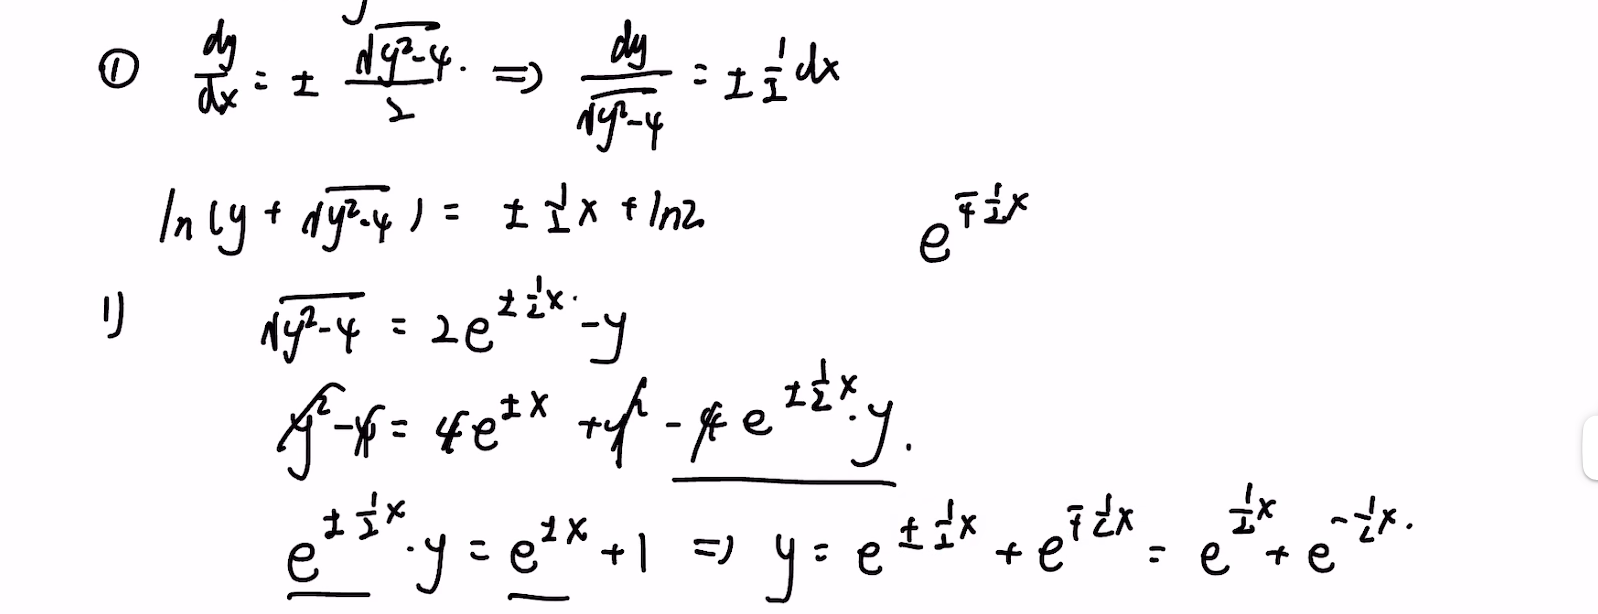 ① dy/dx = ± √(y²-4)/2 . ⇒ dy/√(y²-4) = ± 1/2 dx
ln(y + √(y²-4)) = ± 1/2 x + ln2
e^(∓ 1/2 x)
1) √(y²-4) = 2e^(± 1/2 x) - y
y² - 4 = 4e^(±x) + y² - 4e^(± 1/2 x) · y .
e^(± 1/2 x) · y = e^(±x) + 1 ⇒ y = e^(± 1/2 x) + e^(∓ 1/2 x) = e^(1/2 x) + e^(- 1/2 x) .